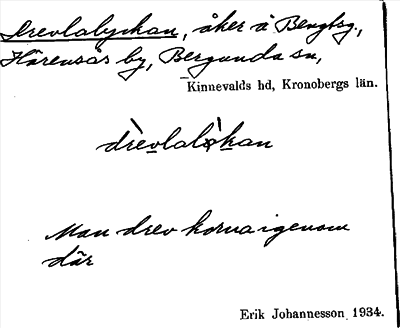 Drevlalyckan, åker å Bengtsg,
Härensås by, Bergunda sn,
Kinnevalds hd, Kronobergs län.
drèvlalỳkan
Man drev korna igenom
där
Erik Johannesson 1934.